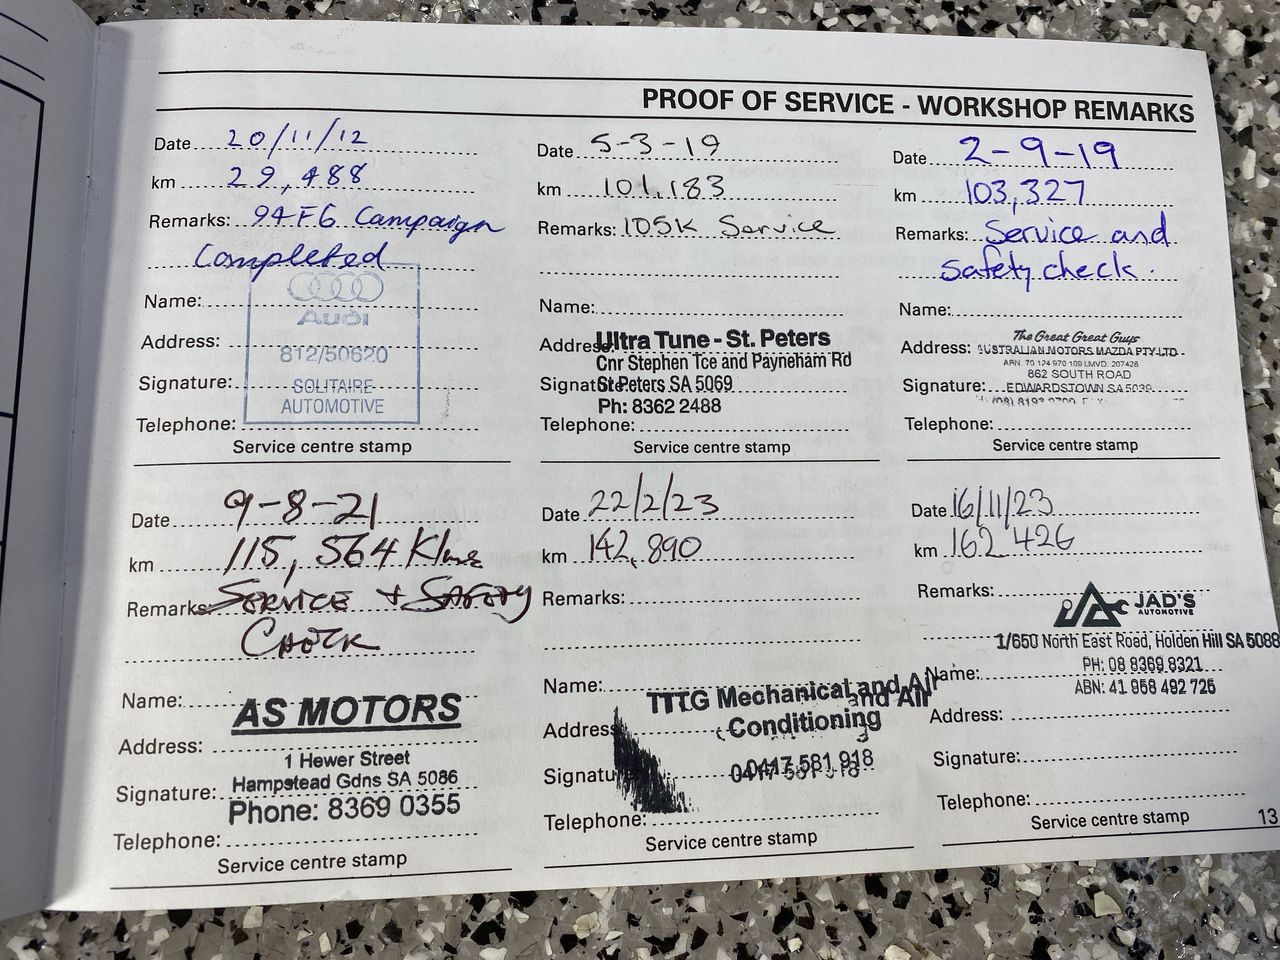 PROOF OF SERVICE - WORKSHOP REMARKS
Date 20/11/12
km 29,488
Remarks: 94F6 Campaign
Completed
Name:
Address:
Signature:
Telephone:
Audi
812/50620
SOLITAIRE
AUTOMOTIVE
Service centre stamp
Date 5-3-19
km 101,183
Remarks: 105K Service
Name:
Address
Signature
Telephone:
Ultra Tune - St. Peters
Cnr Stephen Tce and Payneham Rd
St Peters SA 5069
Ph: 8362 2488
Service centre stamp
Date 2-9-19
km 103,327
Remarks: Service and
safety check.
Name:
Address:
Signature:
Telephone:
The Great Great Guys
AUSTRALIAN MOTORS MAZDA PTY LTD
ABN. 70 124 970 109 LMVD. 207428
862 SOUTH ROAD
EDWARDSTOWN SA 5039
Service centre stamp
Date 9-8-21
km 115,564 Klms
Remarks: SERVICE + SAFETY
CHECK
Name:
Address:
Signature:
Telephone:
AS MOTORS
1 Hewer Street
Hampstead Gdns SA 5086
Phone: 8369 0355
Service centre stamp
Date 22/2/23
km 142,890
Remarks:
Name:
Address
Signatu
Telephone:
TTTG Mechanical and Air
and Air
Conditioning
0417 581 918
0417 581 918
Service centre stamp
Date 16/11/23
km 162 426
Remarks:
JAD'S
AUTOMOTIVE
1/650 North East Road, Holden Hill SA 5088
PH: 08 8369 8321
ABN: 41 958 492 726
Name:
Address:
Signature:
Telephone:
Service centre stamp
13